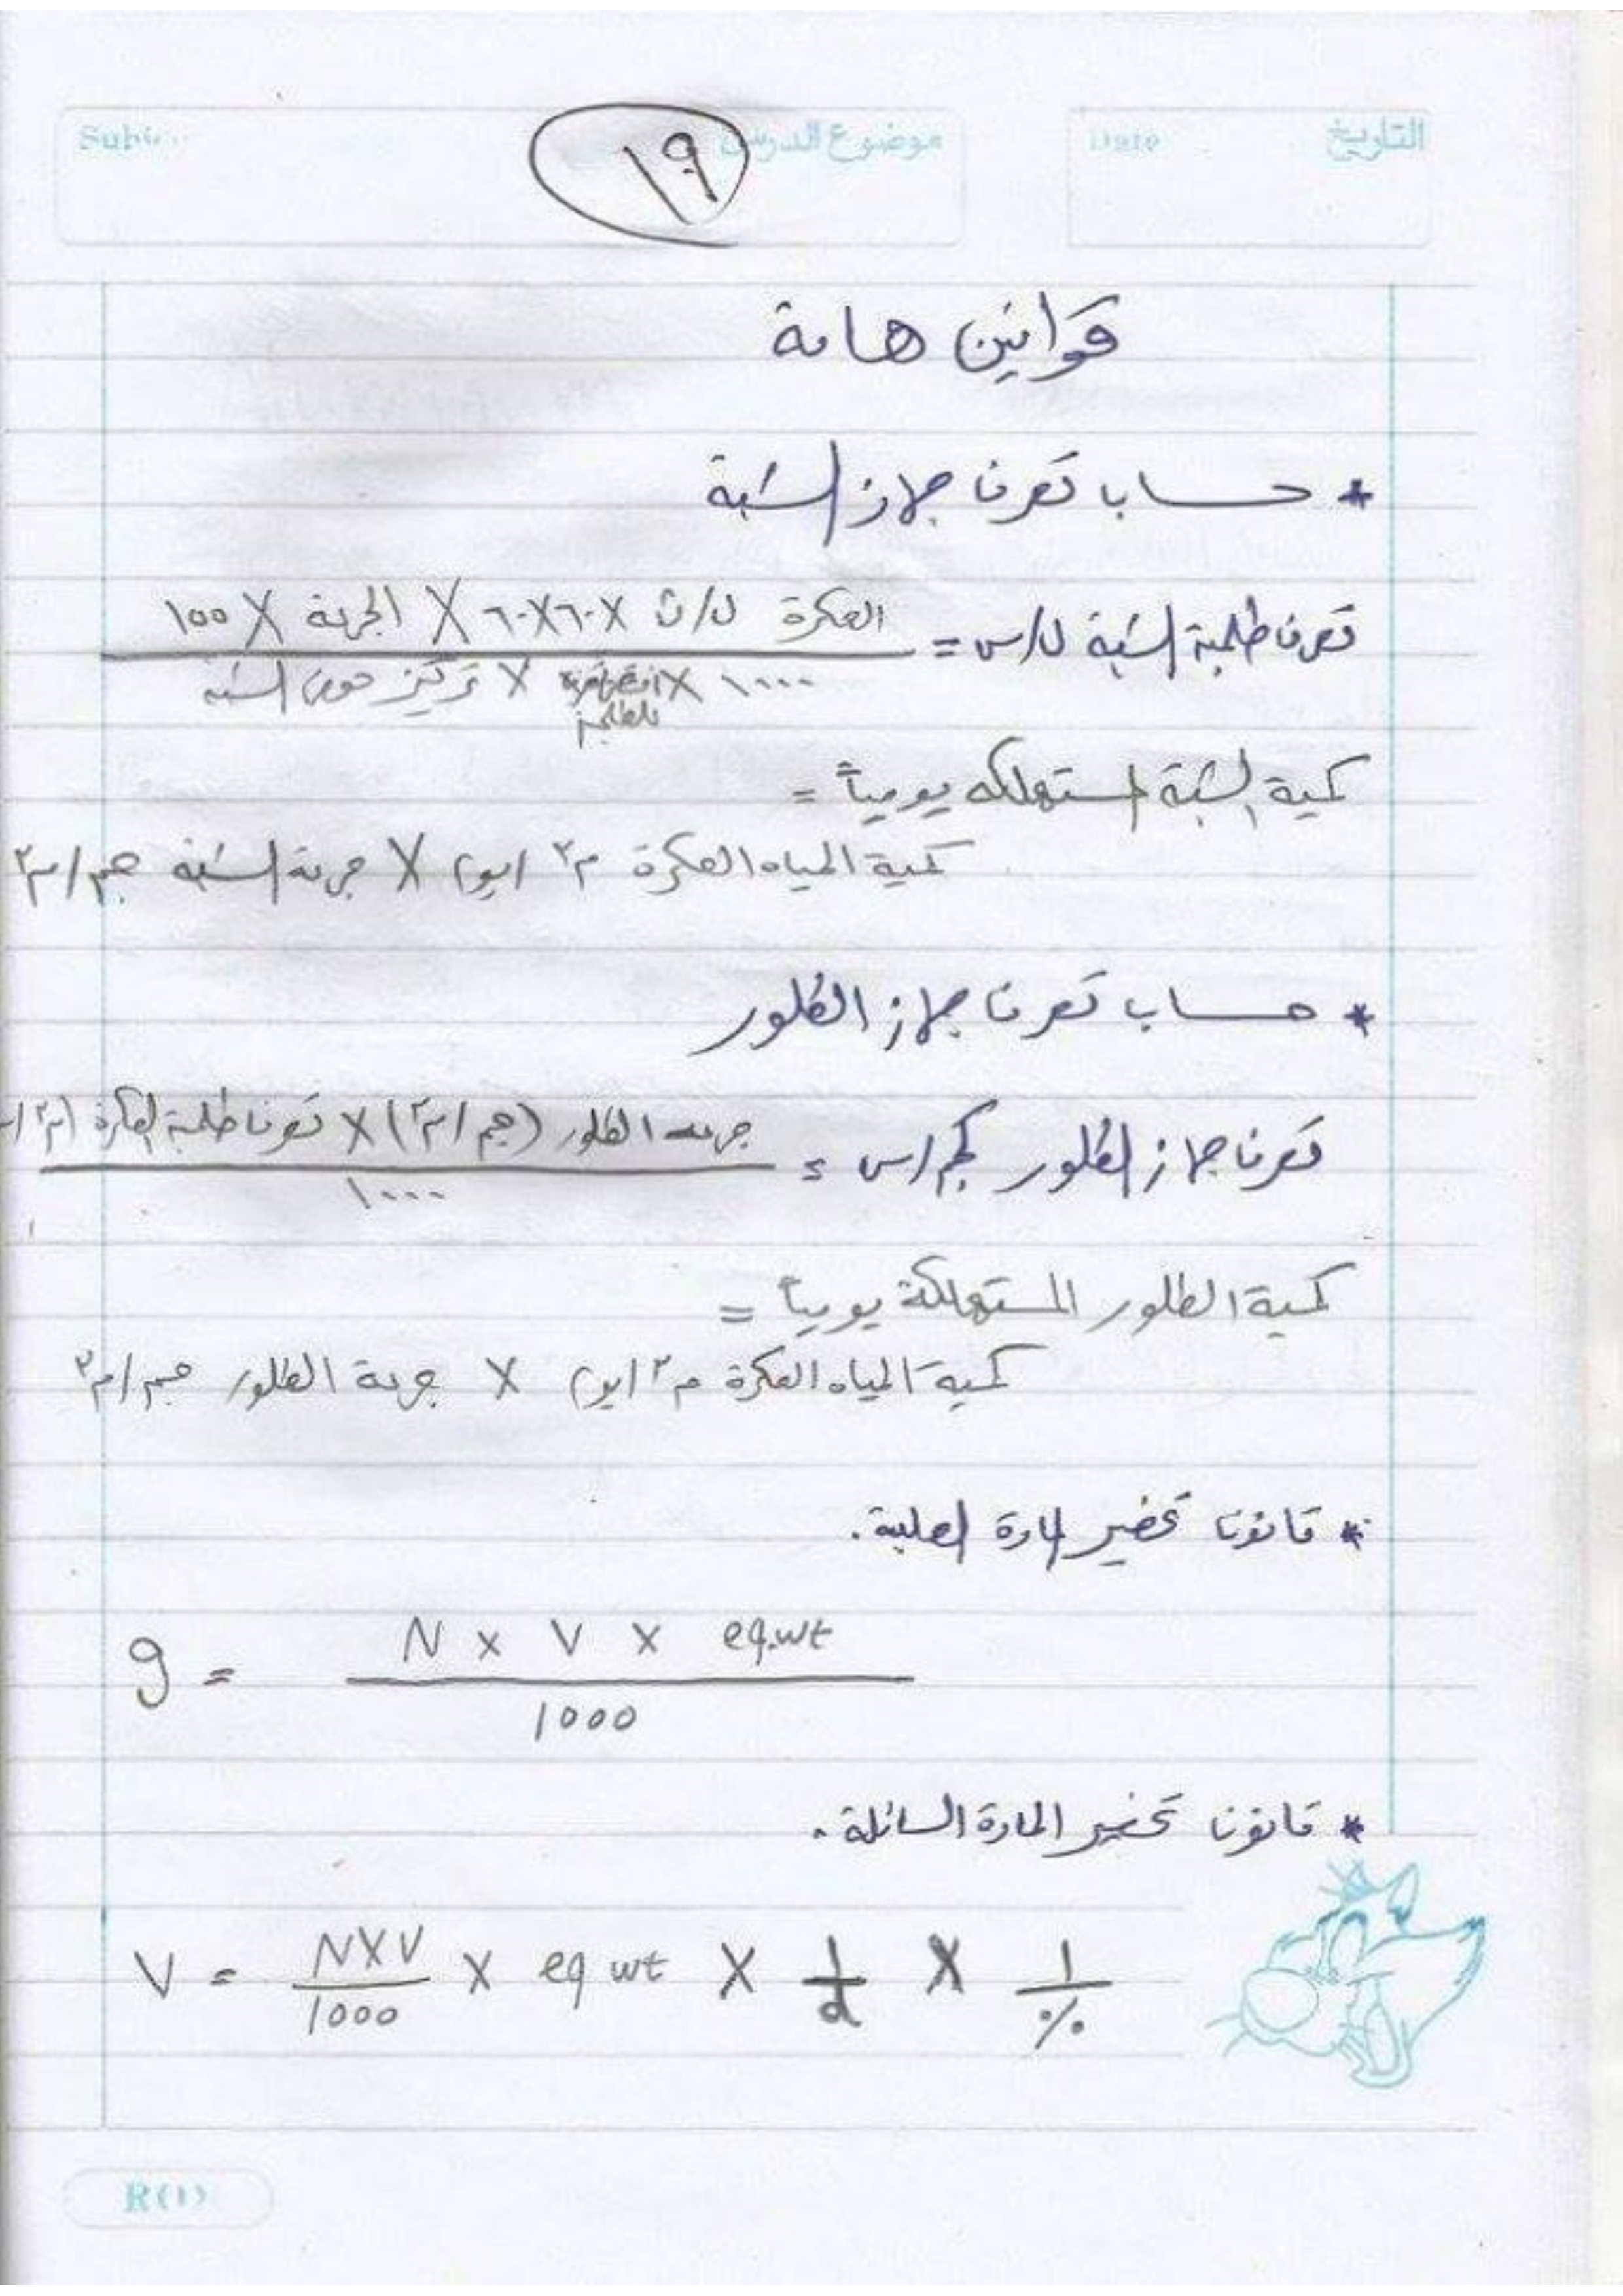 Date التاريخ
موضوع الدرس
١٩
قوانين هامة
* حساب تصرف جهاز الشبة
تصرف طلمبة الشبة ل/س = العكرة ل/ث X ٦٠X٦٠ X الجرعة X 100
١٠٠٠ X X تركيز حوض الشبه
للطلمبة
كمية الشبة المستهلكه يومياً =
كمية المياه العكرة م٣ /يوم X جرعة الشبة جم/م٣
* حساب تصرف جهاز الكلور
تصرف جهاز الكلور كجم/س = جرعه الكلور (جم/م٣) X تصرف طلمبة العكرة (م٣/
١٠٠٠
كمية الكلور المستهلكة يومياً =
كمية المياه العكرة م٣/يوم X جرعة الكلور جم/م٣
* قانون تحضير المادة الصلبة.
g = N x V x eq.wt
1000
* قانون تحضير المادة السائلة.
V = NXV X eq wt X 1 X 1
1000 d %
R(1)